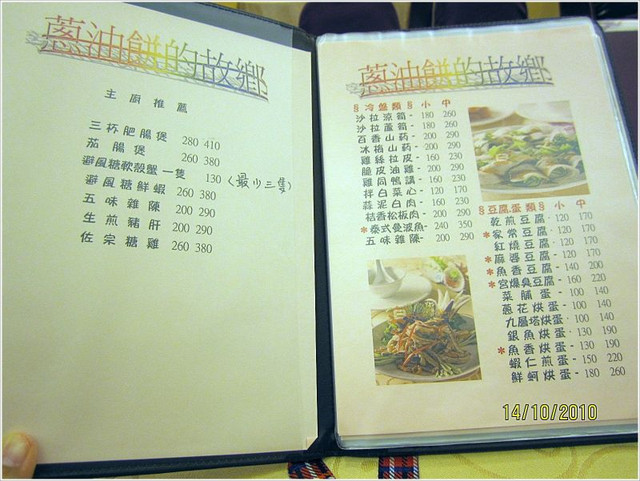 蔥油餅的故鄉
主廚推薦
三杯肥腸煲 280 410
茄腸煲 260 380
避風糖軟殼蟹一隻 130 (最少三隻)
避風糖鮮蝦 260 380
五味雜陳 200 290
生煎豬肝 200 290
佐宗糖雞 260 380
蔥油餅的故鄉
§冷盤類§ 小 中
沙拉涼筍- 180 260
沙拉蘆筍- 180 260
百香山藥- 200 290
冰梅山藥- 200 290
雞絲拉皮- 160 230
脆皮油雞- 200 290
雞同鴨講- 160 230
拌白菜心- 120 170
蒜泥白肉- 160 230
桔香松板肉- 200 290
*泰式曼波魚- 240 350
五味雜陳- 200 290
§豆腐蛋類§ 小 中
乾煎豆腐- 120 170
*家常豆腐- 120 170
紅燒豆腐- 120 170
*麻婆豆腐- 120 170
*魚香豆腐- 140 200
*宮爆臭豆腐- 160 220
菜脯蛋- 100 140
蔥花烘蛋- 100 140
九層塔烘蛋- 100 140
銀魚烘蛋- 130 190
*魚香烘蛋- 130 190
蝦仁煎蛋- 150 220
鮮蚵烘蛋- 180 260
14/10/2010